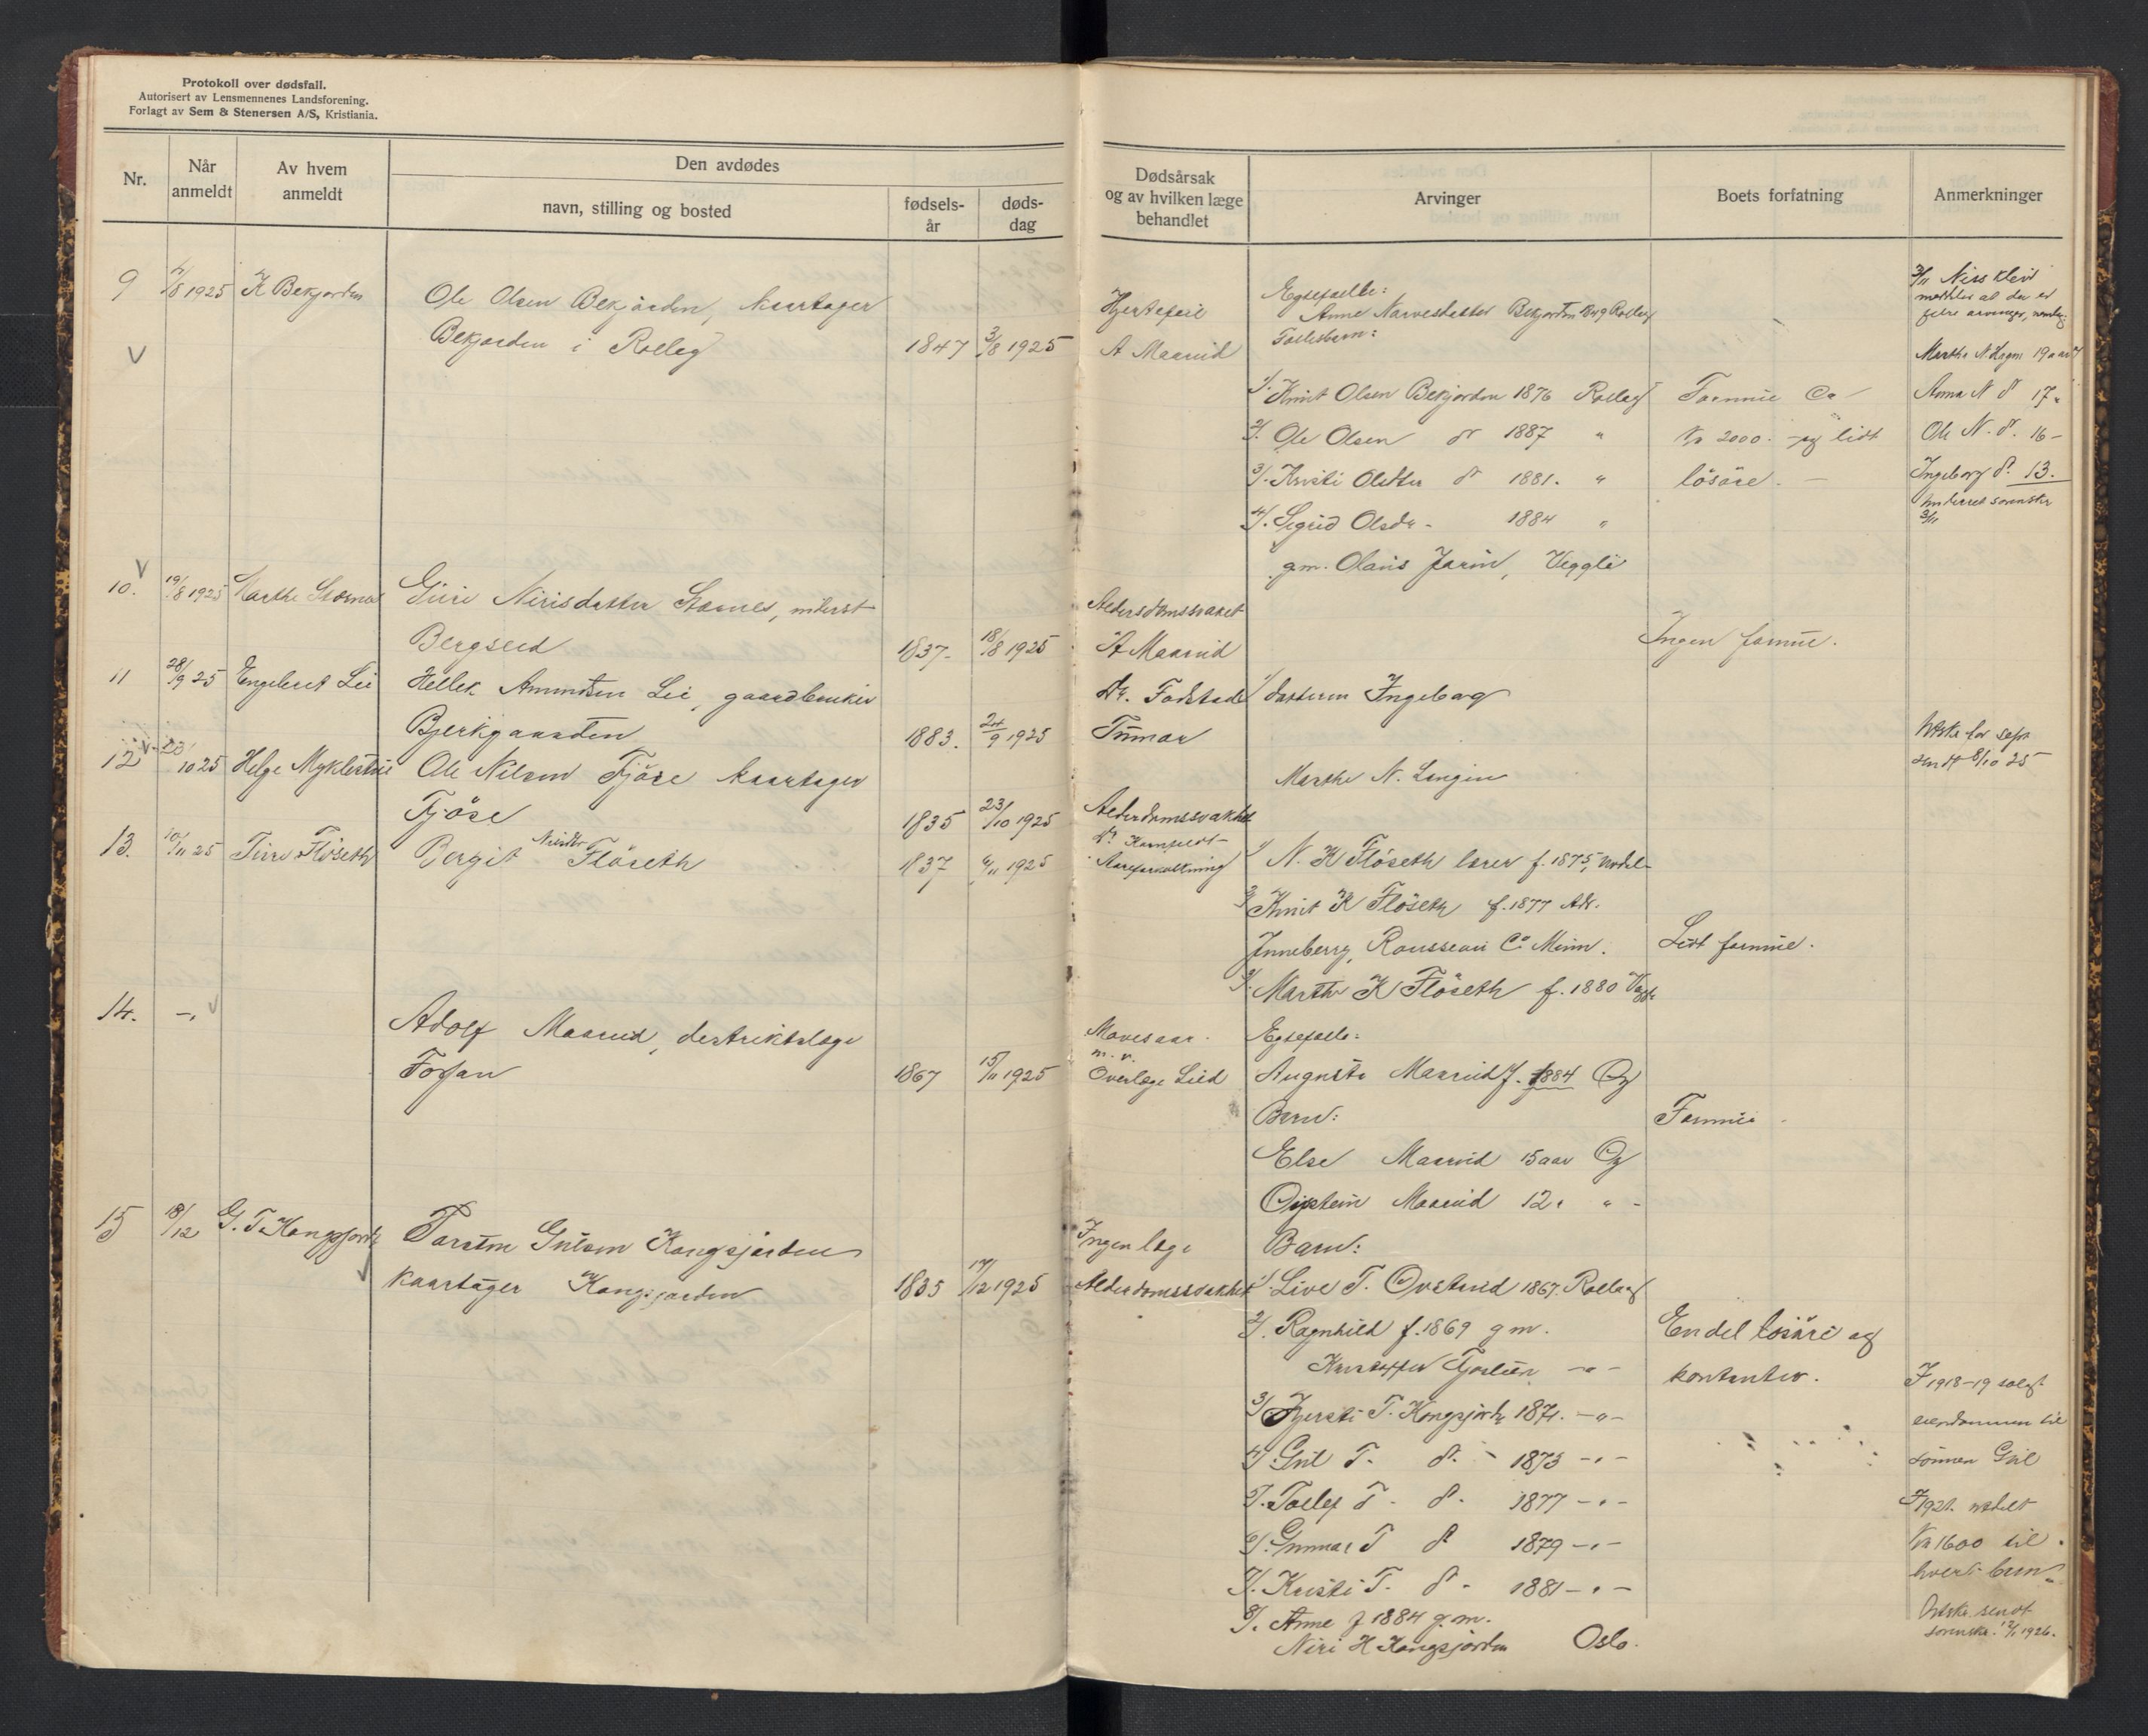 Protokoll over dødsfall.
Autorisert av Lensmennenes Landsforening.
Forlagt av Sem & Stenersen A/S, Kristiania.
Nr.
Når anmeldt
Av hvem anmeldt
Den avdødes
navn, stilling og bosted
fødsels-år
døds-dag
Dødsårsak og av hvilken læge behandlet
Arvinger
Boets forfatning
Anmerkninger
9 4/8 1925 K Bekjorden
Ole Olsen Bekjorden, kaartager
Bekjorden i Rollag 1847 3/8 1925
Hjertefeil
A Maarud
Egtefælle:
Anne Narvesdatter Bekjorden 1849 Rollag
Fællesbarn:
1/. Knut Olsen Bekjorden 1876 Rollag
2/. Ole Olsen do 1887 "
3/. Kristi Olsdtter do 1881. "
4/. Sigrid Olsdtr - 1884 "
g.m. Olavis Jarin, Veggli
Formue Ca
Kr 2000. - og lidt
løsøre. -
3/11 Niss Kleiv
meddeler at der er
flere arvinger,
Marthe N. 19 aar
Anna N do 17 "
Ole N. do. 16 -
Ingeborg do. 13.
3/11
10. 19/8 1925 Marthe Stærnes
Guri Nirisdatter Stærnes, inderst
Bergseid 1837- 18/8 1925
Alderdomssvaket
A Maarud
Ingen formue.
11 28/9 25 Engebret Lei
Hellek Amundsen Lei, gaardbruker
Bjerkgaarden 1883. 24/9 1925
Dr. Fodstad
Tumor
1/ datteren Ingeborg
for sept
sendt 8/10 25
12 23/10 25 Helge Myklestue
Ole Nilsen Fjöse kaartager
Fjöse 1835 23/10 1925
Alderdomssvakhet
Marthe N. Langin
13. 10/11 25 Ture Flöseth
Bergit Nirisdtr Flöseth 1837 6/11 1925
Aareforkalkning
1/ N. K Flöseth lærer f. 1875,
2/ Knut K Flöseth f. 1877 Adr.
Jenneberry, Rousseau Co Minn.
3/. Marthe K Flöseth f. 1880
Lidt formue.
14. -"-
Adolf Maarud, destriktslæge
Forfan 1867 15/11 1925
Mavesaar.
m. v.
Overlæge Lied
Egtefælle:
Augusta Maarud f. 1884 Og
Barn:
Else Maarud 15 aar Og
Öystein Maarud 12 " " -
Formue
15 18/12 G. T. Kongsjorde
Torsten Gulsen Kongsjorden
kaartager Kongsjorden 1835 17/12 1925
Ingen læge
Alderdomssvakhet
Barn:
1/. Live T. Ovstrud 1867. Rollag
2/. Ragnhild f. 1869 g m.
Kristoffer -"-
3/. Kjersti T. Kongsjorde 1871. -"-
4/ Gul T. do. - 1873 -"-
5/. Tollef T. do. 1877 -"-
6/. Gunnar T do 1879 -"-
7/. Kristi T. do - 1881 -"-
8/. Anne f 1884 g.m.
Niri H Kongsjorden Oslo.
En del løsøre og
kontanter.
I 1918-19 solgt
eiendommen til
sønnen Gul
I 1921. utdelt
Kr 1600 til
hvert barn
sendt
sorenskr. 12/1 1926.